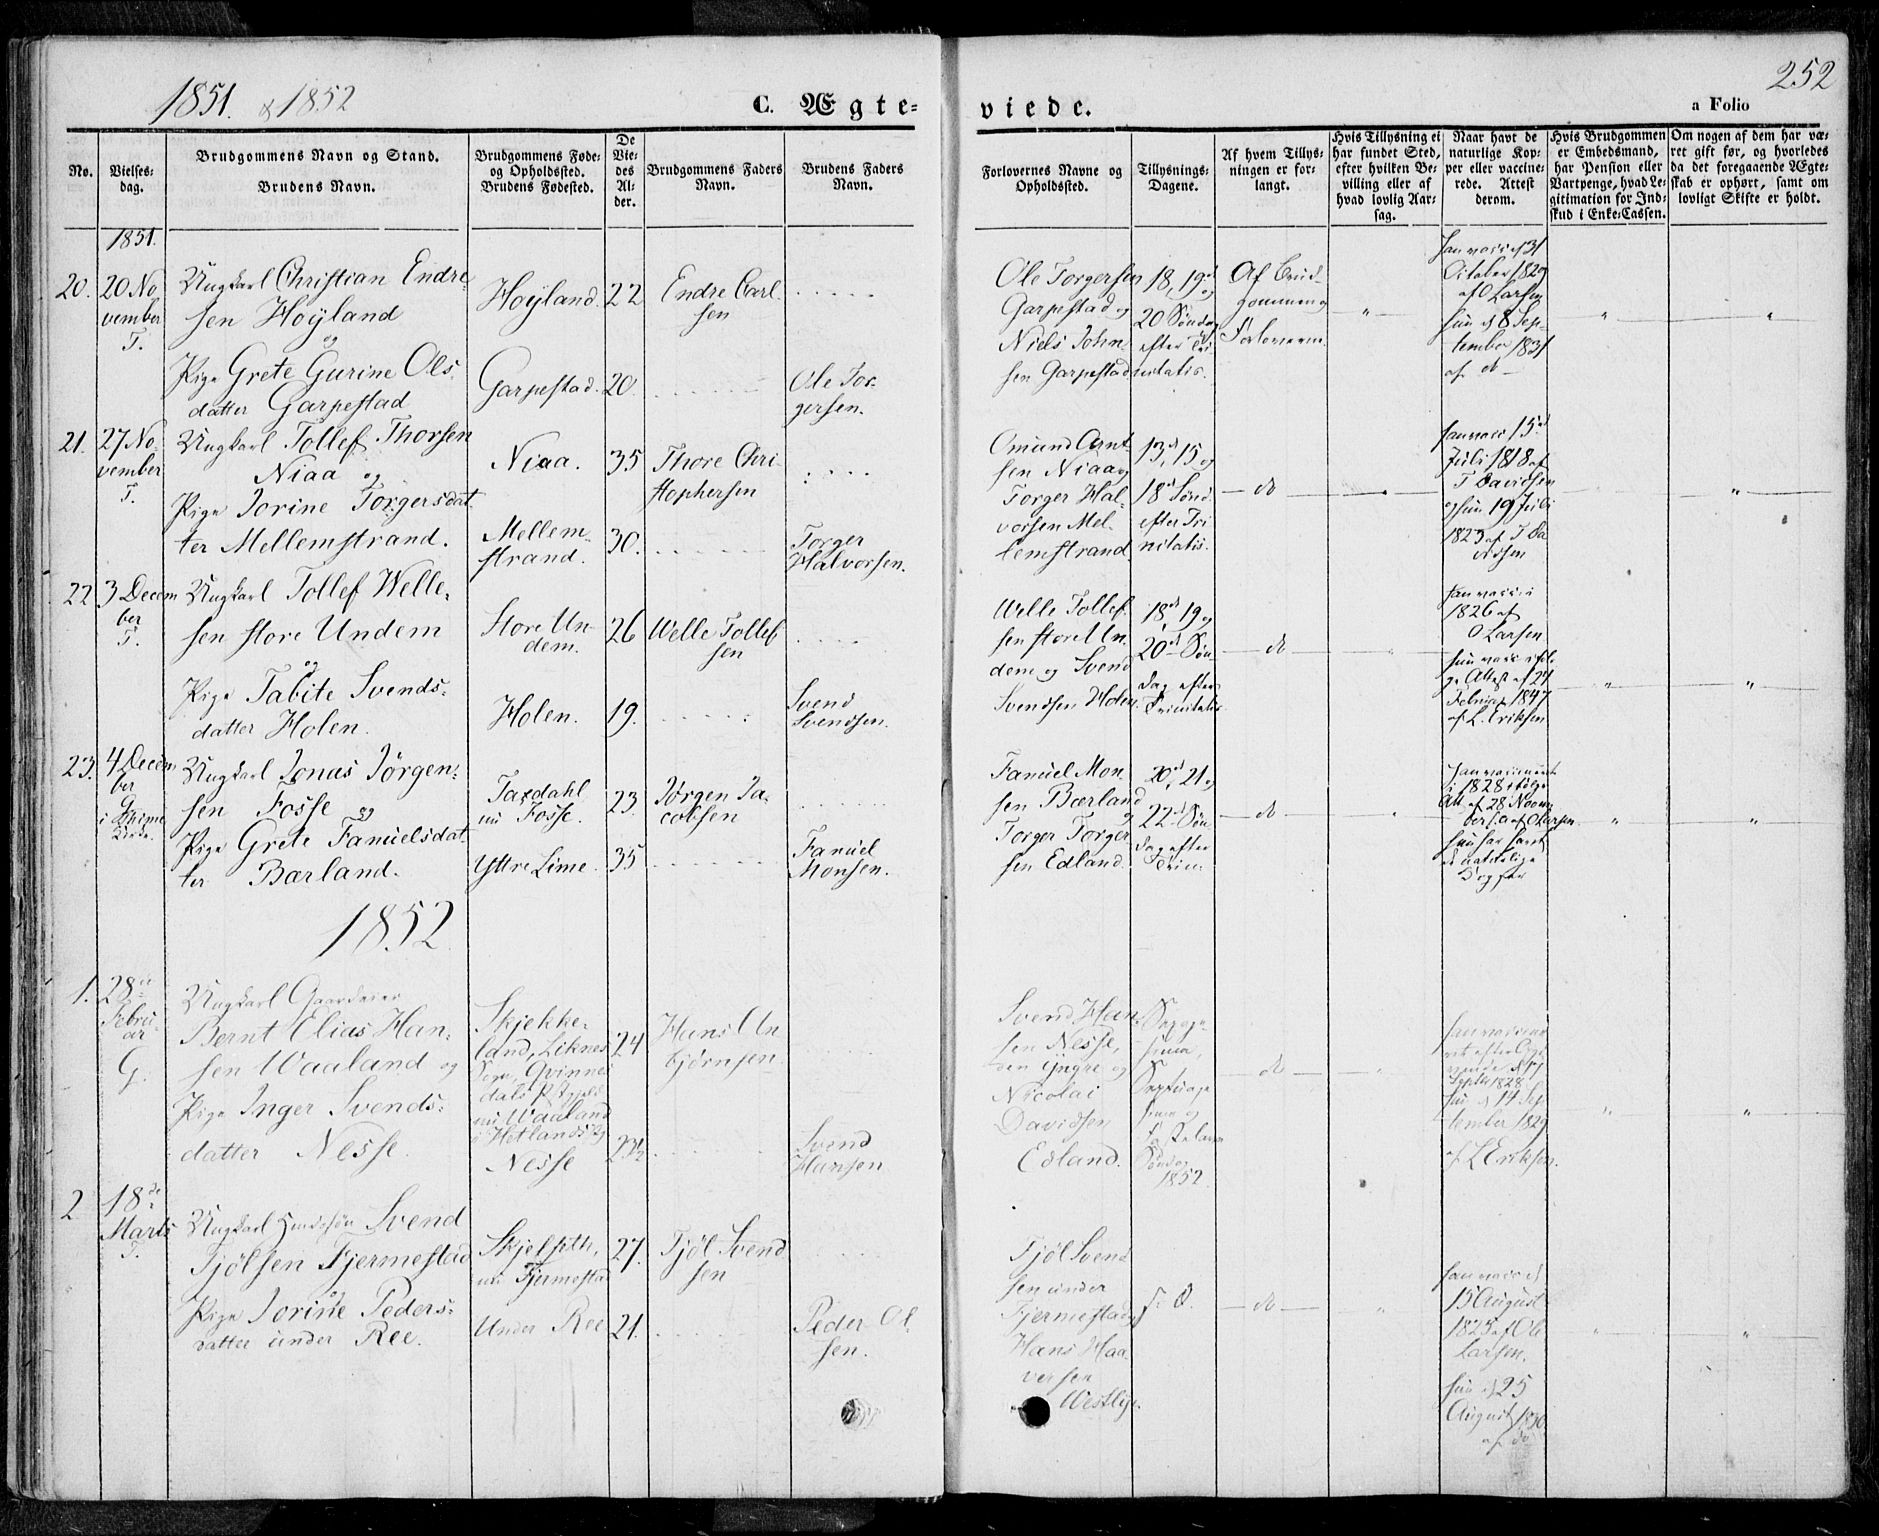 1851 & 1852
C. Ægte-
viede.
252
a Folio
No.
Vielses-
dag.
Brudgommens Navn og Stand.
Brudens Navn.
Brudgommens Føde-
og Opholdssted.
Brudens Fødested.
De
Vie-
des
Al-
der.
Brudgommens Faders
Navn.
Brudens Faders
Navn.
Forlovernes Navne og
Opholdssted.
Tillysnings-
Dagene.
Af hvem Tillys-
ningen er for-
langt.
Hvis Tillysning ei
har fundet Sted,
efter hvilken Be-
villing eller af
hvad lovlig Aar-
sag.
Naar havt de
naturlige Kop-
per eller vaccine-
rede. Attest
derom.
Hvis Brudgommen
er Embedsmand,
har Pension eller
Vartpenge, hvad Le-
gitimation for Ind-
skud i Enke-Cassen.
Om nogen af dem har væ-
ret gift før, og hvorledes
da det foregaaende Ægte-
skab er ophørt, samt om
lovligt Skifte er holdt.
1851.
20.
20 No
vember
T.
Ungkarl Christian Endre
sen Høyland
og
Pige Grete Gurine Ols
datter Garpestad
Høyland.
Garpestad.
22
20.
Endre Carl
sen
Ole Tor
gersen.
Ole Torgersen
Garpestad og
Niels John-
sen Garpestad
18, 19 og
20 Søndag
efter Tri
nitatis.
Af Brud
gommen og
Forloverne
han vacc d 31
October 1829
af O Larsen
hun d 8 Sep-
tember 1831
af do
21.
27 No
vember
T.
Ungkarl Tollef Thorsen
Niaa og
Pige Jorine Torgersdat
ter Mellemstrand.
Niaa.
Mellem-
strand.
35
30.
Thore Chri
stophersen
Torger
Halvorsen.
Omund Arnt
sen Niaa og
Torger Hal-
vorsen Mel-
lemstrand
13d, 15 og
18d Sønd
efter Tri
nitatis.
do
han vacc 15d
Juli 1818 af
T Davidsen
og hun 19 Juli
1823 af T Da
vidsen
22
3 Decem
ber
T.
Ungkarl Tollef Welle-
sen store Undem
og
Pige Tabite Svends-
datter Holen.
Store Un-
dem.
Holen.
26
19.
Welle Tollef
sen
Svend
Svendsen.
Welle Tollef
sen store Un-
dem og Svend
Svendsen Holen
18d, 19 og
20d Søn-
dag efter
Trinitatis
do
han vacc i
1826 af
O Larsen
hun vacc iføl
ge Attest af 27
Februar 1847
af L. Eriksen
23.
4 Decem
ber
G
i Lyhime
Kirke.
Ungkarl Jonas Jørgen-
sen Fosse og
Pige Grete Fanuelsdat
ter Bærland.
Taxdahl
nu Fosse.
Yttre Lime.
23
35
Jørgen Ja-
cobsen
Fanuel
Monsen.
Fanuel Mon-
sen Bærland
og
Torger Torger
sen Edland.
20d, 21 og
22d Søn
dag efter
Trin
do
i 1828 ifølge
Att. af 28 Novem
ber
hun har havt
de naturlige
Kopper
1852.
1.
28de
Febru-
ar
G.
Ungkarl Gaardeier
Bernt Elias Han-
sen Waaland og
Pige Inger Svends-
datter Nesse.
Skjekke-
land, Liknes
Sogn, Qvinnes
dals Pstgjeld
nu Waaland
i Hetlands Sg
Nesse
24
23½
Hans Un
bjørnsen
Svend
Hansen
Svend Han-
sen Nesse,
den yngre og
Nicolai
Davidsen
Edland.
Sexage-
sima,
Septuage
sima og
Fastelavn
Søndag
1852.
do
Septbr 1828
hun d 14 Sep
tember 1829
af L Eriksen.
2
18de
Marts
T.
Ungkarl Huusmand Svend
Tjølsen Fjermestad
og
Pige Jorine Peders-
datter under Ree.
nu Fjermestad
Under Ree
27.
21.
Tjøl Svend
sen
Peder Ol
sen.
Tjøl Svend
sen under
Fjermestad og
Hans Haa
versen
Westly.
do
han vacc d
15 August
1825 af Ole
Larsen.
hun d 25
August 1830
af do